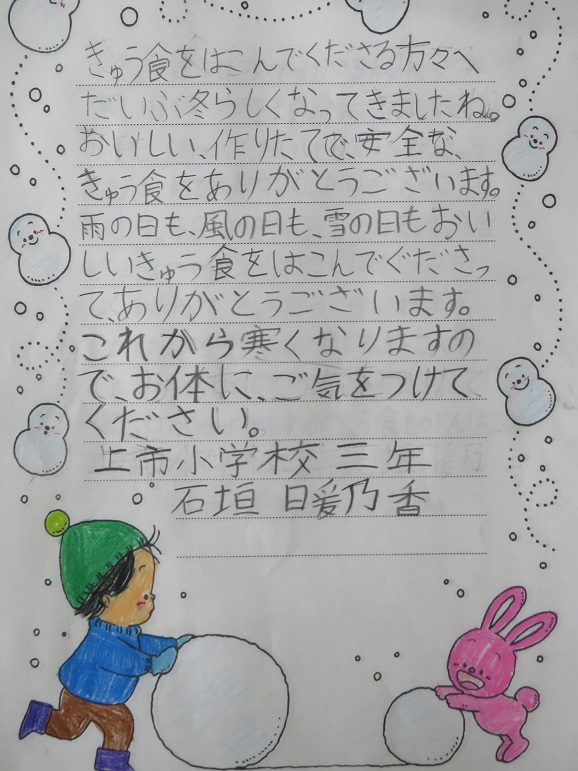 きゅう食をはこんでくださる方々へ
だいぶ冬らしくなってきましたね。
おいしい、作りたてで、安全な、
きゅう食をありがとうございます。
雨の日も、風の日も、雪の日もおい
しいきゅう食をはこんでぐださっ
て、ありがとうございます。
これから寒くなりますの
で、お体に、ご気をつけて
ください。
上市小学校 三年
石垣 日愛乃香